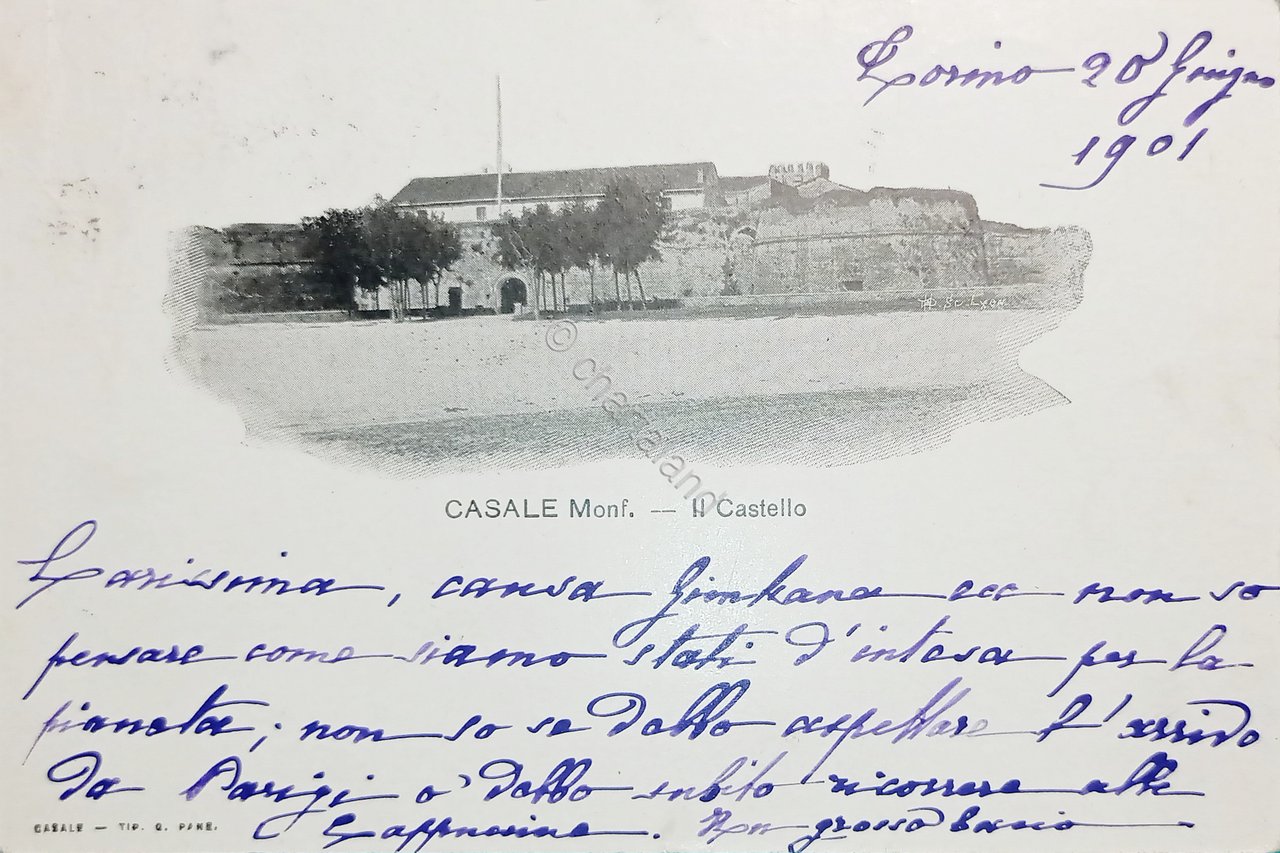 Torino 20 Giugno
1901
HP Sc. Lyon
© cherziland
CASALE Monf. — Il Castello
Carissima, causa Gimkana ecc non so
pensare come siamo stati d'intesa per la
pianeta; non so se debbo aspettare l'arrivo
da Parigi o' debbo subito ricorrere alle
Cappuccine. Un grosso bacio
CASALE — TIP. G. PANE.